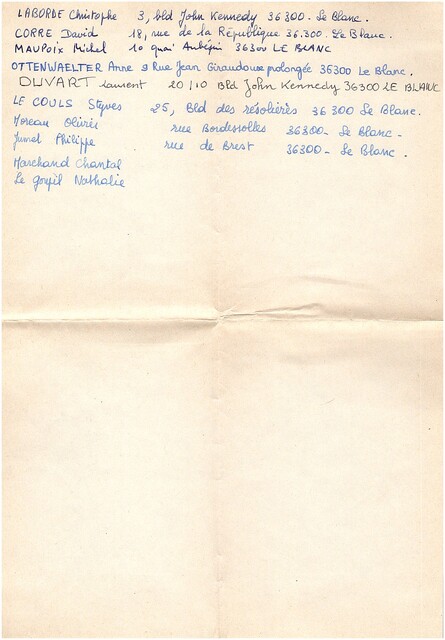 LABORDE Christophe 3, bld John Kennedy 36300 - Le Blanc.
CORRE David 18, rue de la République 36.300. Le Blanc.
MAUPOIX Michel 10 quai Aubépin 36300 LE BLANC
OTTENWAELTER Anne 9 Rue Jean Giraudoux prolongée 36300 Le Blanc.
DUVART Laurent 20/10 Bld John Kennedy 36300 LE BLANC
LE COULS 25, Bld des résolières 36300 Le Blanc.
Moreau Olivier rue Bordessolles 36300 - Le Blanc -
Jumel Philippe rue de Brest 36300 - Le Blanc.
Marchand Chantal
Le Nathalie